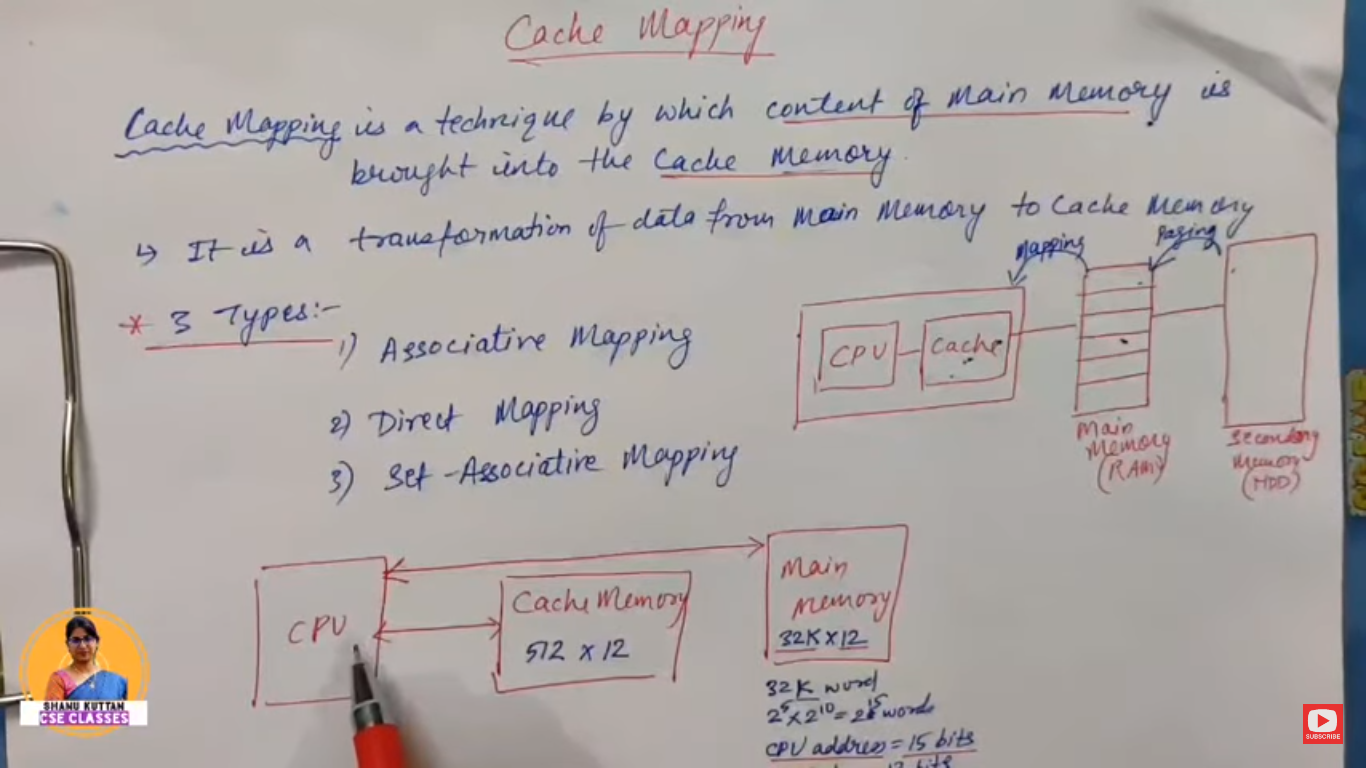 Cache Mapping
Cache Mapping is a technique by which content of Main Memory is
brought into the Cache Memory.
↳ It is a transformation of data from Main Memory to Cache Memory
* 3 Types:-
1) Associative Mapping
2) Direct Mapping
3) Set-Associative Mapping
Mapping
Paging
CPU
Cache
Main
Memory
(RAM)
Secondary
Memory
(HDD)
CPU
Cache Memory
512 x 12
Main
Memory
32K x 12
32K word
2^5 x 2^10 = 2^15 words
CPU address = 15 bits
12 bits
SHANU KUTTAN
CSE CLASSES
SUBSCRIBE